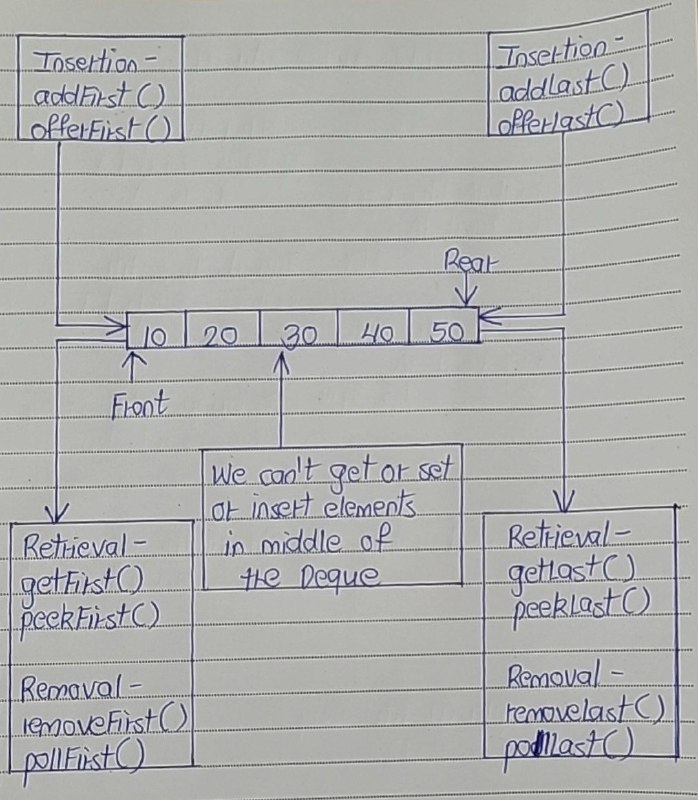 Insertion-
addFirst()
offerFirst()
Insertion-
addLast()
offerLast()
Rear
10 20 30 40 50
Front
We can't get or set
or insert elements
in middle of
the Deque
Retrieval-
getFirst()
peekFirst()
Removal-
removeFirst()
pollFirst()
Retrieval-
getLast()
peekLast()
Removal-
removeLast()
pollLast()